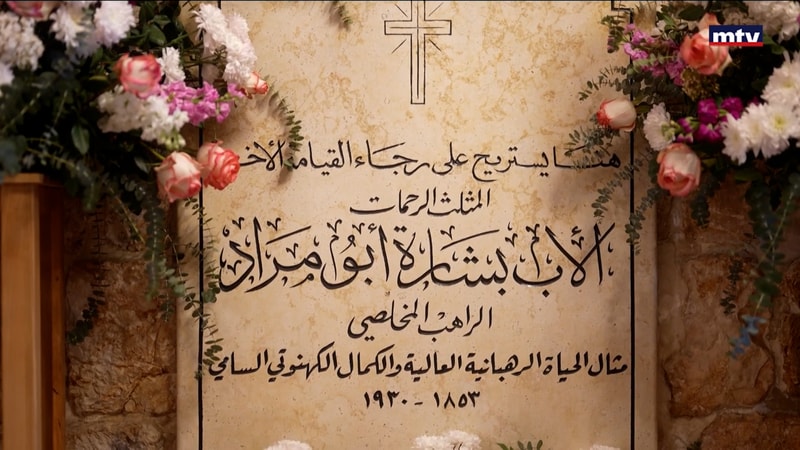 mtv
هنا يستريح على رجاء القيامة
المثلث الرحمات
الأب بشارة أبو مراد
الراهب المخلصي
مثال الحياة الرهبانية العالية والكمال الكهنوتي السامي
١٨٥٣ - ١٩٣٠